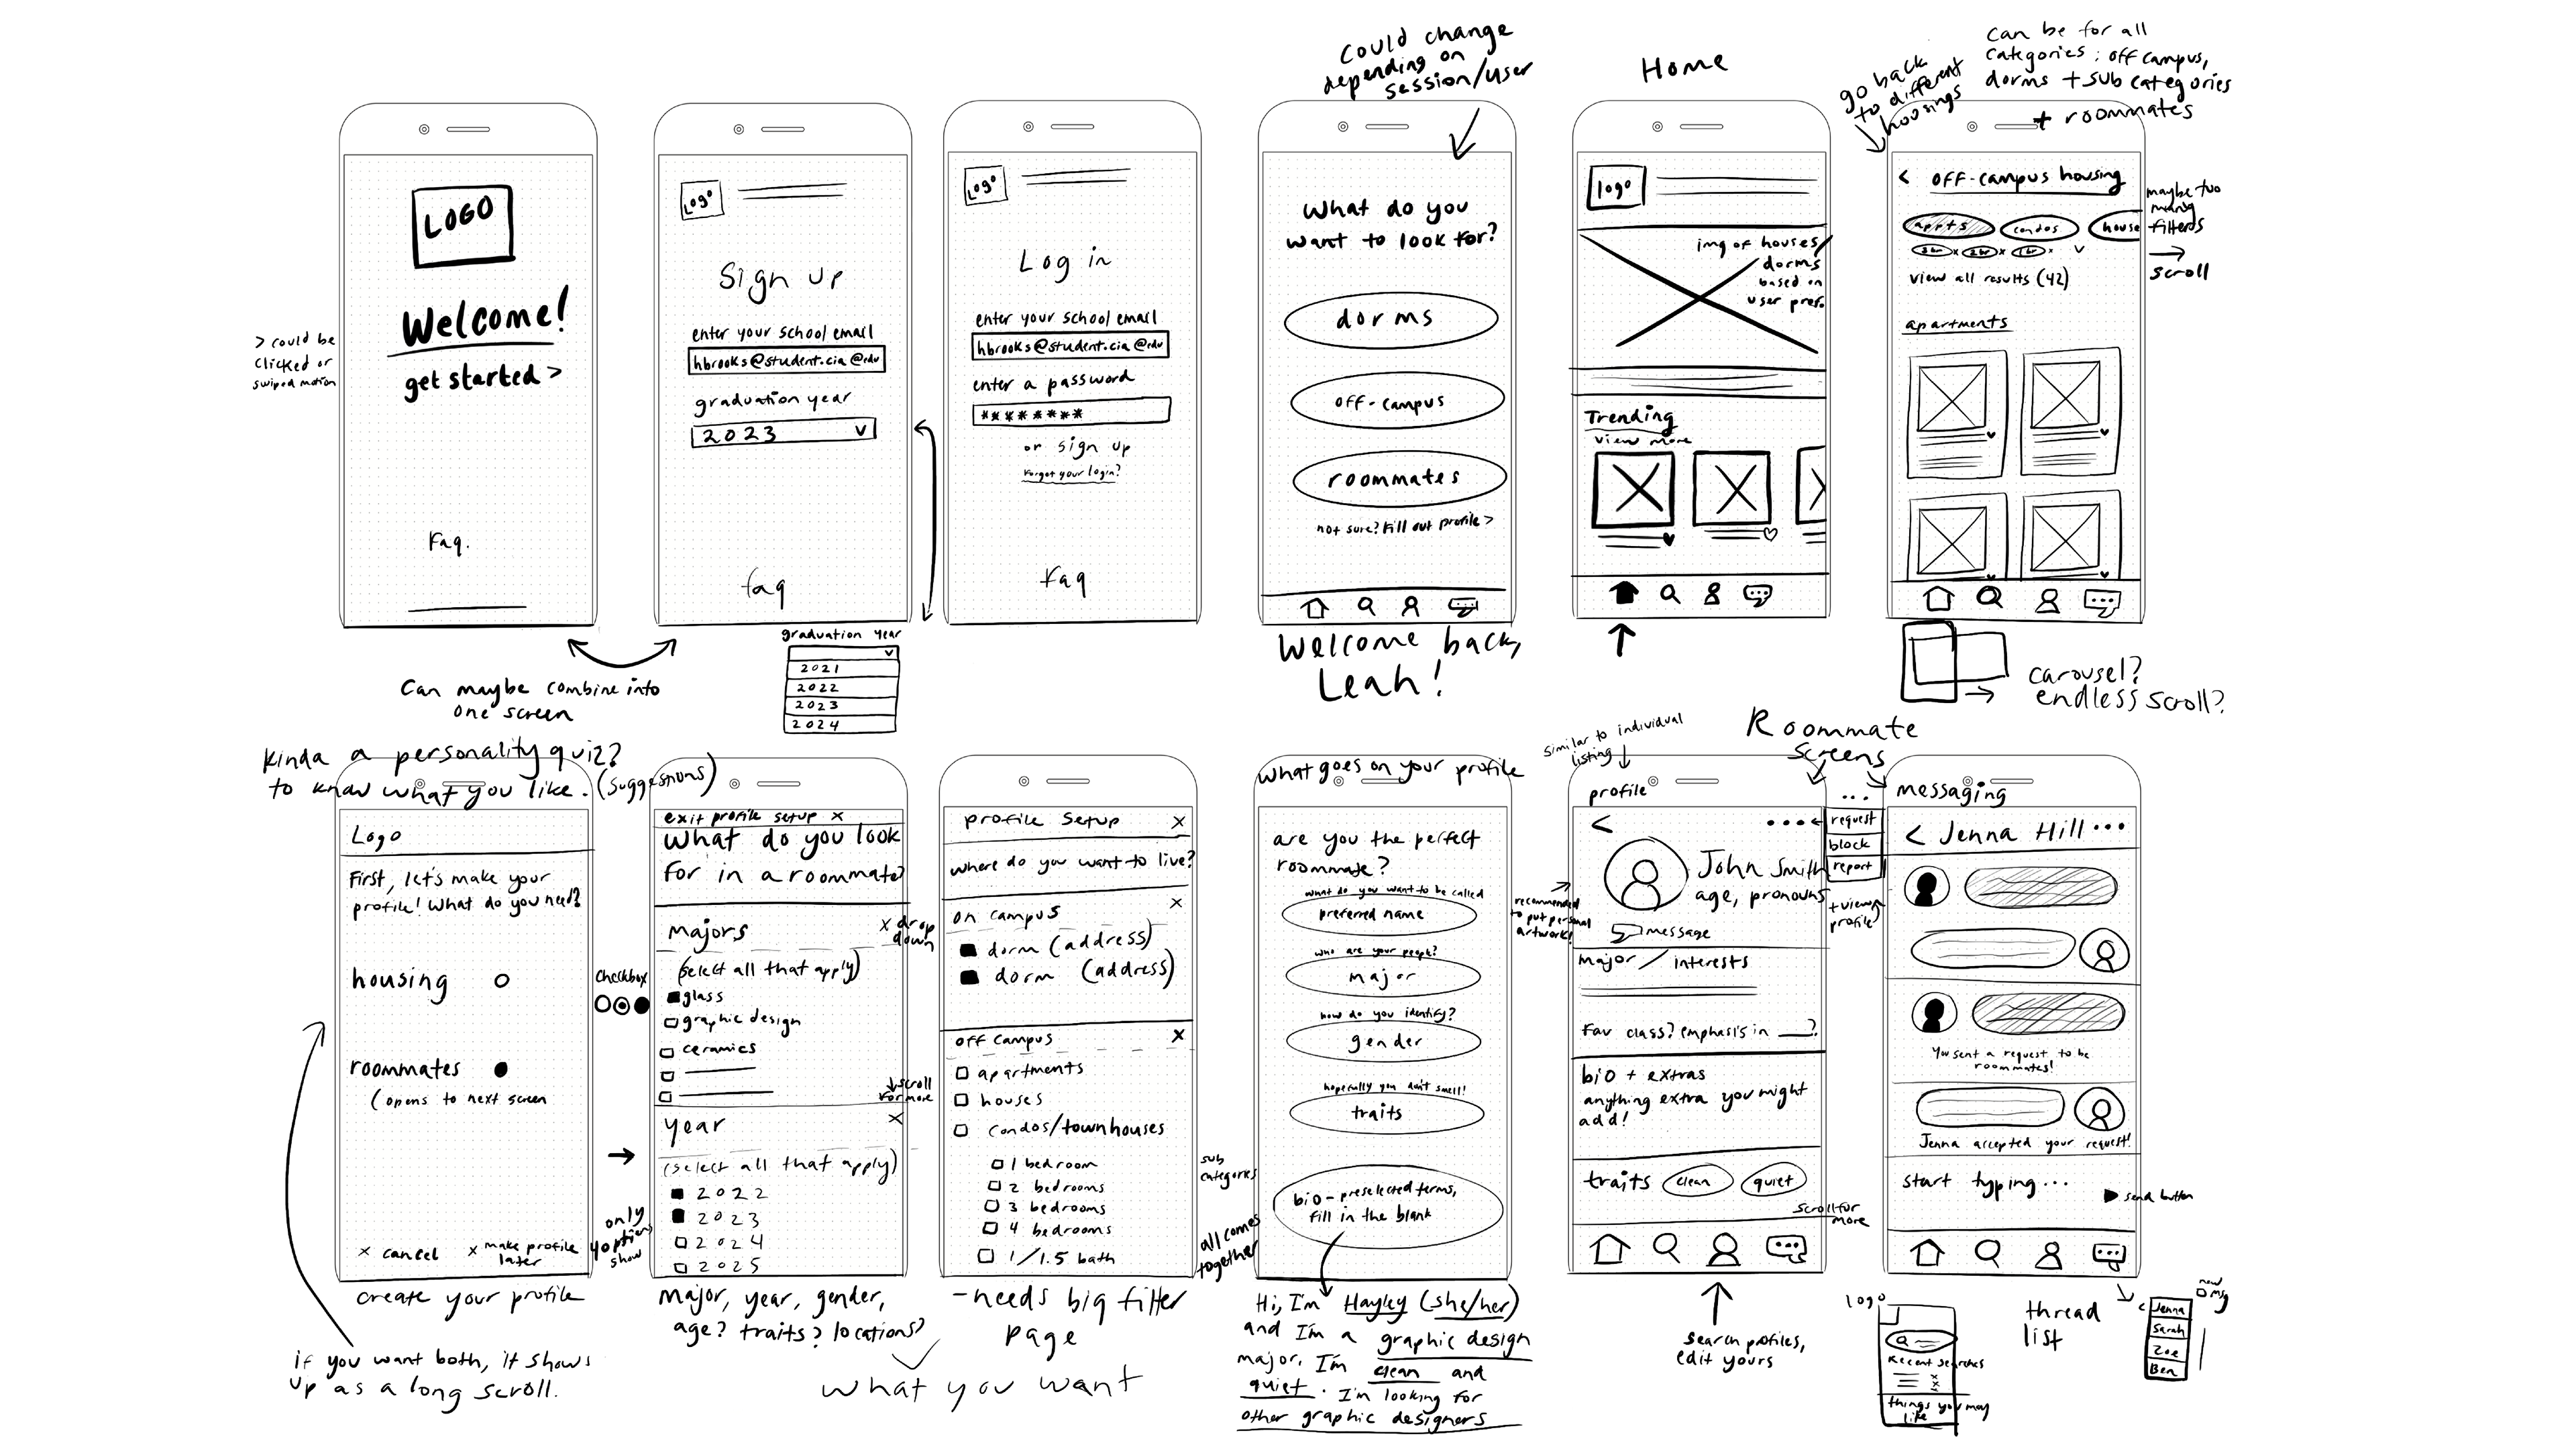 > could be
clicked or
swiped motion
LOGO
Welcome!
get started >
Faq.
Can maybe combine into
one screen
Logo
Sign up
enter your school email
hbrooks@student.cia@edu
graduation year
2023 v
faq
graduation year
v
2021
2022
2023
2024
Logo
Log in
enter your school email
hbrooks@student.cia@edu
enter a password
********
or sign up
Forgot your login?
Faq
could change
depending on
session/user
What do you
want to look for?
dorms
off-campus
roommates
not sure? Fill out profile >
Welcome back,
Leah!
Home
logo
img of houses/
dorms
based on
user pref.
Trending
view more
go back
to different
housings
can be for all
categories: off campus,
dorms + sub categories
+ roommates
< off-campus housing
aprts
condos
house
2br x 2br x 1br x v
view all results (42)
apartments
maybe too
many
filters
scroll
carousel?
endless scroll?
Kinda a personality quiz?
to know what you like. (suggestions)
Logo
First, let's make your
profile! What do you need?
housing
roommates
(opens to next screen
x cancel
x make profile
later
create your profile
if you want both, it shows
up as a long scroll.
checkbox
exit profile setup x
What do you look
for in a roommate?
majors
x drop
down
(select all that apply)
glass
graphic design
ceramics
scroll
for more
year x
(select all that apply)
2022
2023
2024
2025
only
4 options
show
major, year, gender,
age? traits? locations?
what you want
profile setup x
where do you want to live?
x
on campus
dorm (address)
dorm (address)
off campus x
apartments
houses
condos/townhouses
1 bedroom
2 bedrooms
3 bedrooms
4 bedrooms
1/1.5 bath
sub
categories
all comes
together
-needs big filter
page
what goes on your profile
are you the perfect
roommate?
what do you want to be called
preferred name
who are your people?
major
how do you identify?
gender
hopefully you don't smell!
traits
bio - preselected terms,
fill in the blank
Hi, I'm Hayley (she/her)
and I'm a graphic design
major. I'm clean and
quiet. I'm looking for
other graphic designers
similar to individual
listing
Roommate
screens
profile
< ...
John Smith
age, pronouns
message
recommended
to put personal
artwork!
major / interests
Fav class? emphasis in ___?
bio + extras
anything extra you might
add!
traits clean quiet
scroll for
more
search profiles,
edit yours
...
request
block
report
+ view
profile
messaging
< Jenna Hill ...
You sent a request to be
roommates!
Jenna accepted your request!
start typing...
send button
logo
Recent searches
x
x
things you may
like
thread
list
new
msg
<
Jenna
Sarah
Zoe
Ben